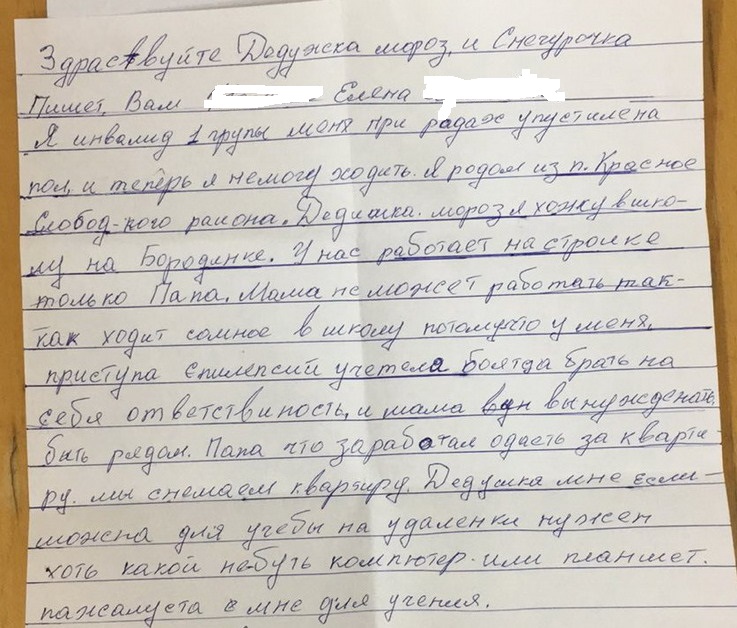 Здраствуйте Дедужска мороз, и Снегурочка
Пишет, Вам Елена
Я инвалид 1 групы меня при радах упустилена
пол, и теперь я немогу ходить. Я родом из п. Красное
Слобод-кого раиона. Дедушка. мороз я хожу в шко-
лу на Бородянке. У нас работает на строике
только Папа. Мама не может работать так-
как ходит сомное в школу потомучто у меня,
приступа Епилепсий учетела боятда брать на
себя ответствиность, и мама вынужденать
быть рядом. Папа что заработал одаеть за кварти-
ру. мы снемаем квартиру. Дедушка мне если-
можна для учебы на удаленки нужен
хоть какой небуть компютер-или планшет.
пажалуста мне для учения.